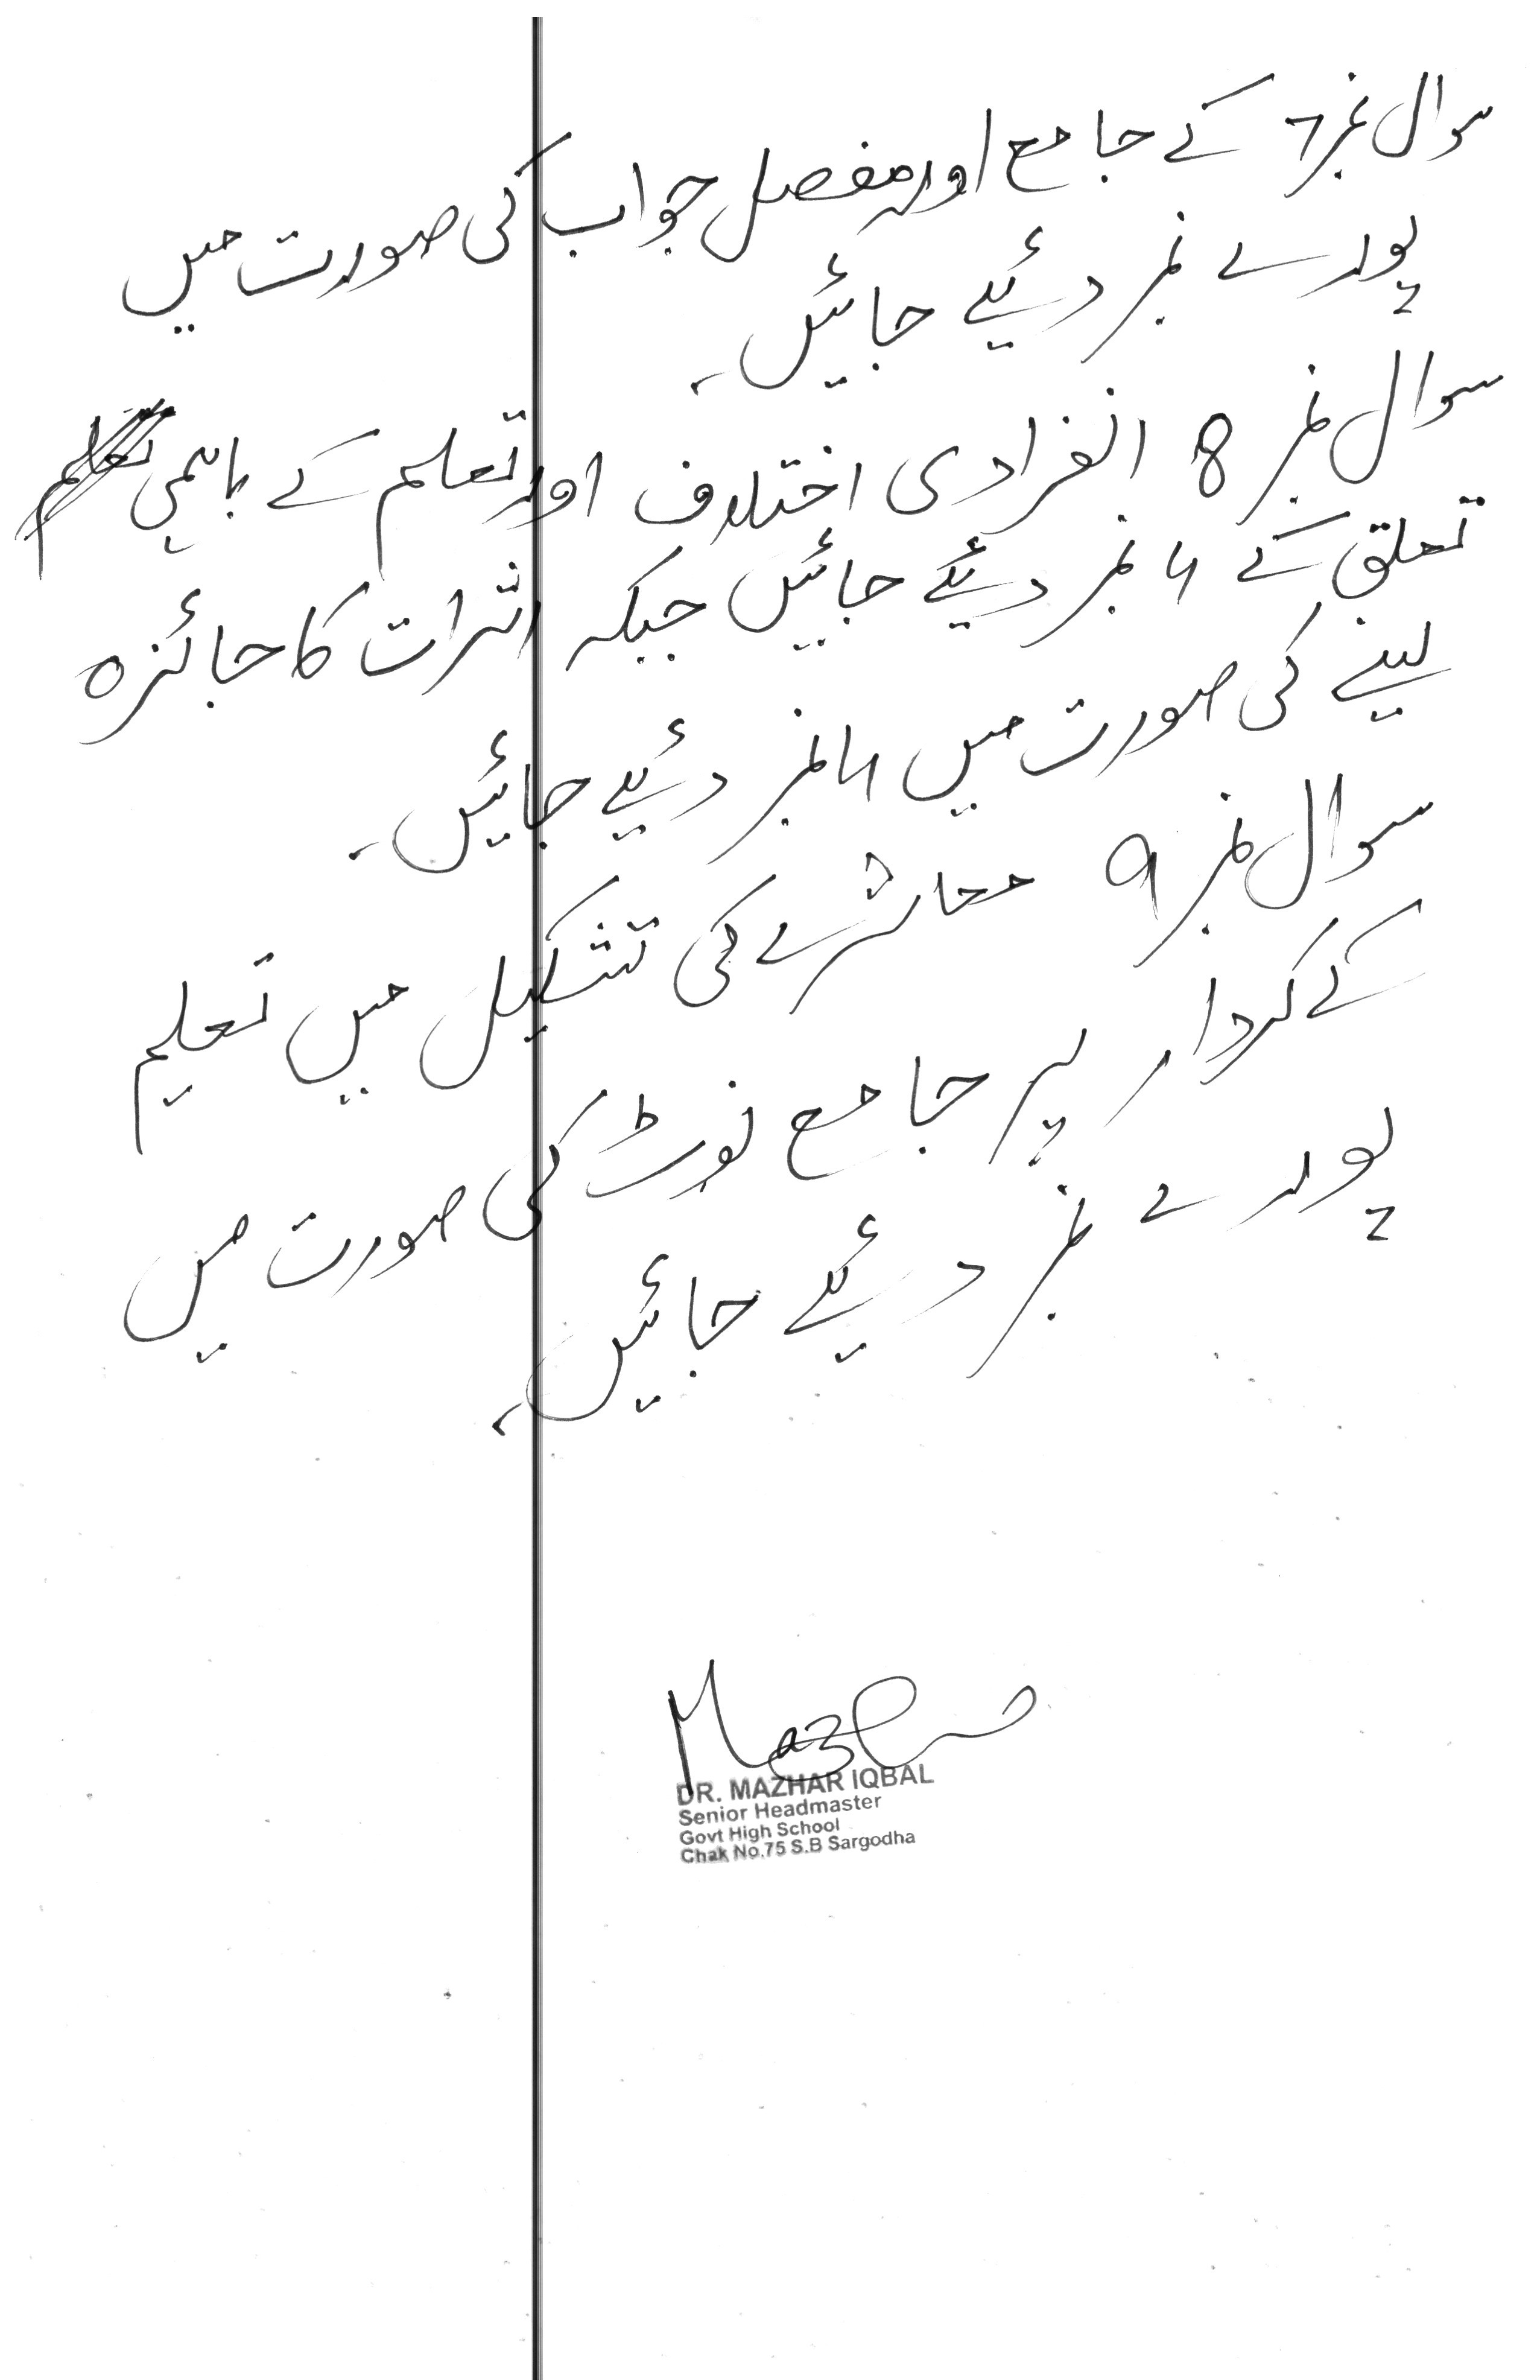 سوال نمبر 7 کے جامع اور مفصل جواب کی صورت میں
پورے نمبر دئیے جائیں۔
سوال نمبر 8 انفرادی اختلاف اور تعلم کے باہمی
تعلق کے 4 نمبر دئیے جائیں جبکہ اثرات کا جائزہ
لینے کی صورت میں 4 نمبر دئیے جائیں۔
سوال نمبر 9 معاشرے کی تشکیل میں تعلیم
کے کردار پر جامع نوٹ کی صورت میں
پورے نمبر دئیے جائیں۔
DR. MAZHAR IQBAL
Senior Headmaster
Govt High School
Chak No.75 S.B Sargodha